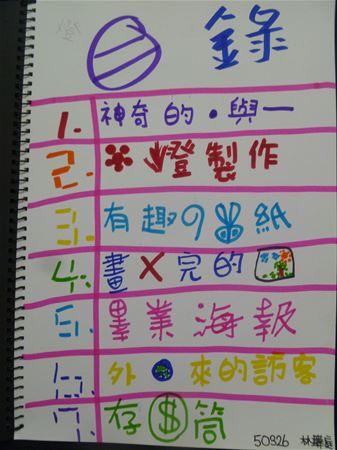 目錄
1. 神奇的·與一
2. 燈製作
3. 有趣的紙
4. 畫X完的
5. 畢業海報
6. 外來的訪客
7. 存$筒
50326